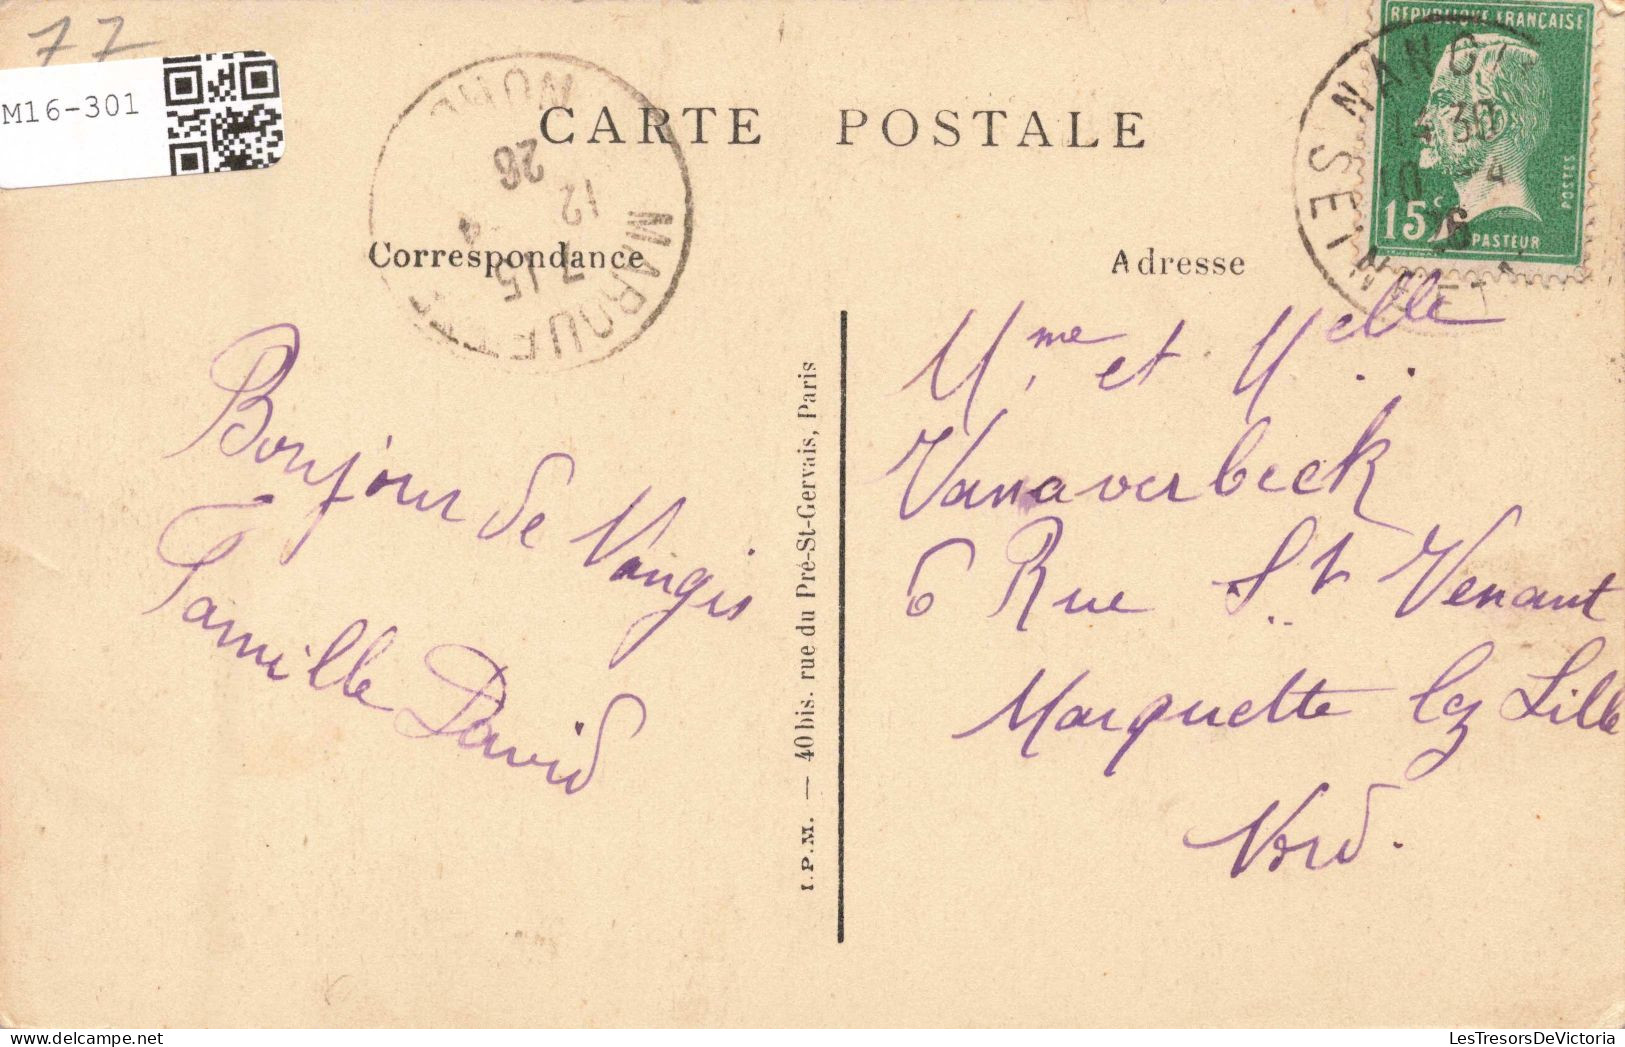 77
M16-301
CARTE POSTALE
Correspondance
Adresse
MARQUETTE NORD
7 15
12 - 4
26
REPUBLIQUE FRANÇAISE
POSTES
15 c
PASTEUR
NANGIS
14 30
10 - 4
26
SEINE ET MARNE
Bonjour de Nangis
Famille David
I.P.M. — 40 bis. rue du Pré-St-Gervais, Paris
Mme et Melle
Vanaverbeck
6 Rue St Venant
Marquette lez Lille
Nord.
LesTresorsDeVictoria